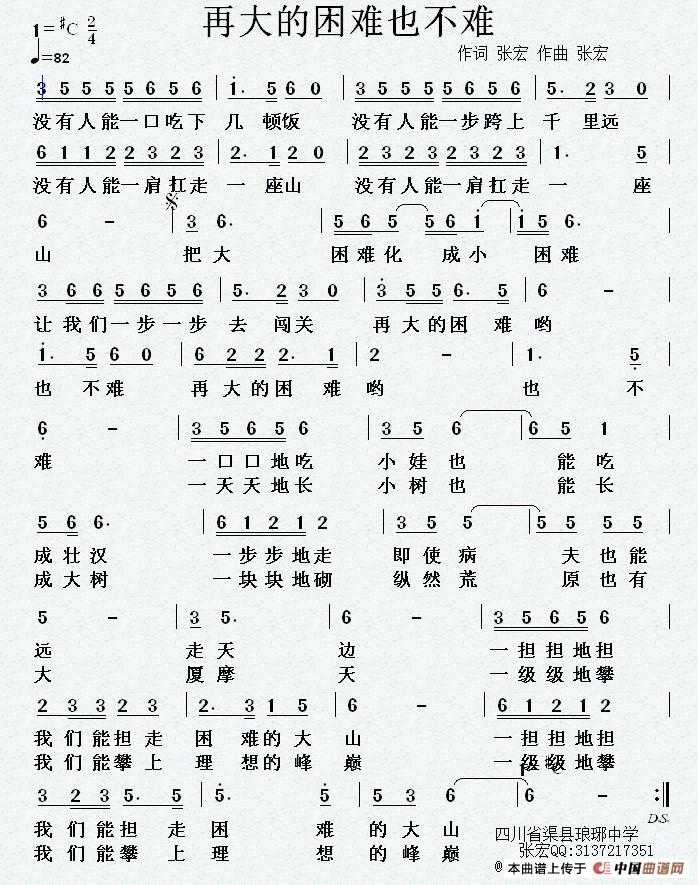 再大的困难也不难
1=#C 2/4
♩=82
作词 张宏 作曲 张宏
3 5 5 5 5 6 5 6 | 1. 5 6 0 | 3 5 5 5 5 6 5 6 | 5. 2 3 0 |
没有人能一口吃下 几 顿饭 没有人能一步跨上 千 里远
6 1 1 2 2 3 2 3 | 2. 1 2 0 | 2 1 1 2 2 3 2 3 | 1. 5 |
没有人能一肩扛走 一 座山 没有人能一肩扛走 一 座
6 – | 3 6. | 5 6 5 5 6 1 | 1 5 6. |
山 把大 困难化 成小 困难
3 6 6 6 5 6 5 6 | 5. 2 3 0 | 3 5 5 6. 5 | 6 – |
让我们一步一步 去 闯关 再大的困 难哟
1. 5 6 0 | 6 2 2 2. 1 | 2 – | 1. 5 |
也 不难 再大的困 难哟 也 不
6 – | 3 5 6 5 5 6 | 3 5 6 | 6 5 1 |
难 一口口地吃 小娃也 能吃
一天天地长 小树也 能长
5 6 6. | 6 1 2 1 1 2 | 3 5 5 | 5 5 5 |
成壮汉 一步步地走 即使病 夫也能
成大树 一块块地砌 纵然荒 原也有
5 – | 3 5. | 6 – | 3 5 6 5 6 |
远 走天 边 一担担地担
大 厦摩 天 一级级地攀
2 3 3 2 3 | 2. 3 5 5 | 6 – | 6 1 2 1 2 |
我们能担走 困 难的大 山 一担担地担
我们能攀上 理 想的峰 巅 一级级地攀
3 2 3 5. 5 | 5. 5 | 5 5 6 | 6 – :||
D.S.
我们能担走 困 难 的大山
我们能攀上 理 想 的峰巅
四川省渠县琅琊中学
张宏QQ:3137217351
@ 本曲谱上传于 中国曲谱网